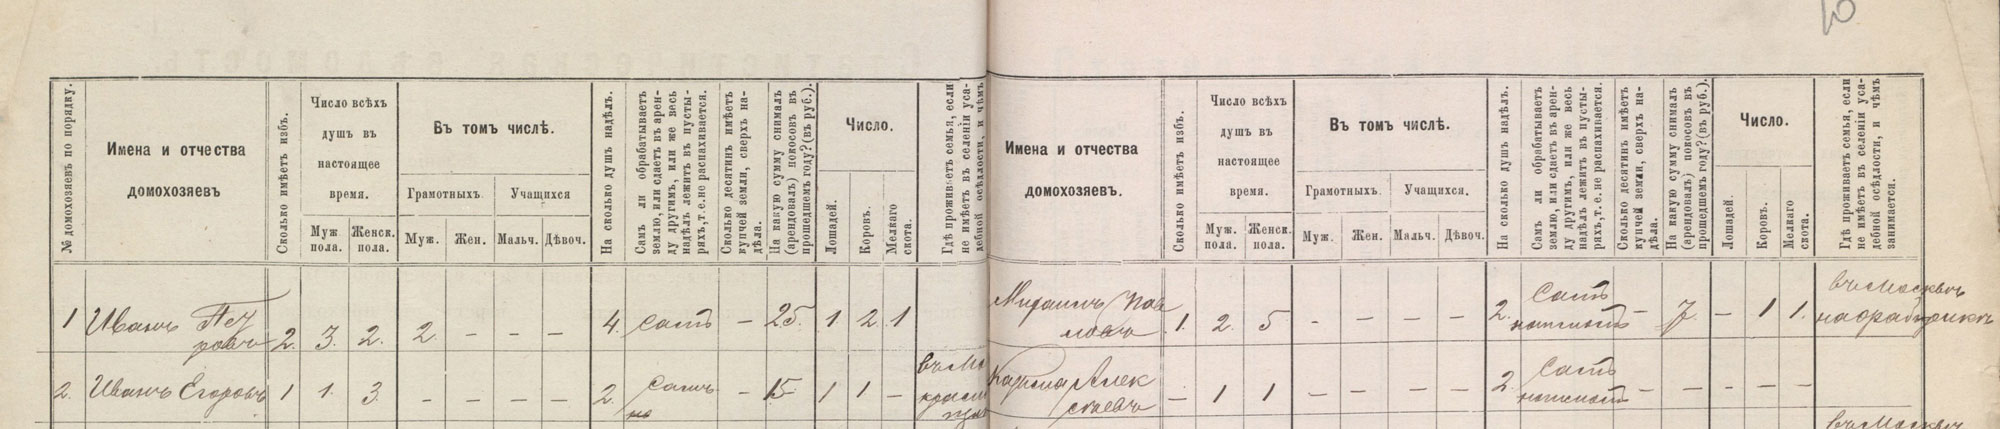 № домохозяевъ по порядку.
Имена и отчества
домохозяевъ
Сколько имѣетъ избъ.
Число всѣхъ
душъ въ
настоящее
время.
Муж
пола.
Женск.
пола.
Въ томъ числѣ.
Грамотныхъ.
Учащихся
Муж.
Жен.
Мальч.
Дѣвоч.
На сколько душъ надѣлъ.
Самъ ли обрабатываетъ
землю, или сдаетъ въ арен-
ду другимъ, или же весь
надѣлъ лежитъ въ пусты-
ряхъ, т. е. не распахивается.
Сколько десятинъ имѣетъ
купчей земли, сверхъ на-
дѣла.
На какую сумму снималъ
(арендовалъ) покосовъ въ
прошедшемъ году? (въ руб.).
Число.
Лошадей.
Коровъ.
Мелкаго
скота.
Гдѣ проживаетъ семья, если
не имѣетъ въ селеніи уса-
дебной осѣдлости, и чѣмъ
1 Иванъ Пет
ровъ 2. 3. 2. 2. – – – 4. самъ – 25. 1. 2. 1
2. Иванъ Егоровъ 1 1. 3. – – – – 2. самъ – 15 1 1 –
Имена и отчества
домохозяевъ.
Сколько имѣетъ избъ.
Число всѣхъ
душъ въ
настоящее
время.
Муж
пола.
Женск.
пола.
Въ томъ числѣ.
Грамотныхъ.
Учащихся.
Муж.
Жен.
Мальч.
Дѣвоч.
На сколько душъ надѣлъ.
Самъ ли обрабатываетъ
землю, или сдаетъ въ арен-
ду другимъ, или же весь
надѣлъ лежитъ въ пусты-
ряхъ, т. е. не распахивается.
Сколько десятинъ имѣетъ
купчей земли, сверхъ на-
дѣла.
На какую сумму снималъ
(арендовалъ) покосовъ въ
прошедшемъ году? (въ руб.).
Число.
Лошадей.
Коровъ.
Мелкаго
скота.
Гдѣ проживаетъ семья, если
не имѣетъ въ селеніи уса-
дебной осѣдлости, и чѣмъ
занимается.
Пав
ловъ 1. 2. 5 – – – – 2. самъ – 7. – 1 1. въ Москвѣ
Алек
сѣевъ – 1 1 – – – – 2. самъ – – – – – –
въ Москвѣ